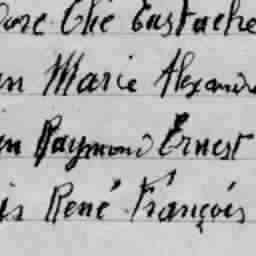 dore Elie Eustache
in Marie Alexandre
in Raymond Ernest
is René François